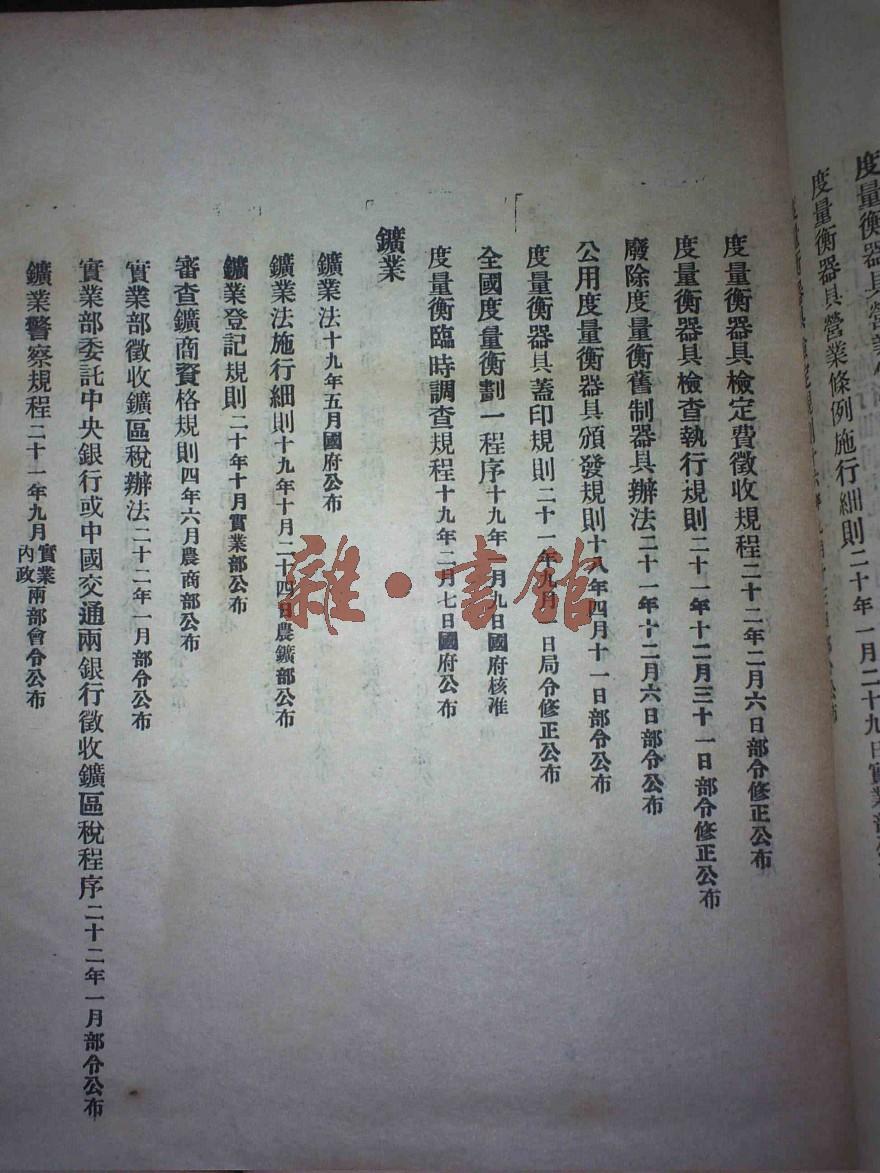 度量衡器具營業
度量衡器具營業條例施行細則二十年一月二十九日實業部
度量衡器具檢定費徵收規程二十二年二月六日部令修正公布
度量衡器具檢查執行規則二十一年十二月三十一日部令修正公布
廢除度量衡舊制器具辦法二十一年十二月六日部令公布
公用度量衡器具頒發規則十八年四月十一日部令公布
度量衡器具蓋印規則二十一年九月 日局令修正公布
全國度量衡劃一程序十九年 月九日國府核准
度量衡臨時調查規程十九年二月七日國府公布
鑛業
鑛業法十九年五月國府公布
鑛業法施行細則十九年十月二十四日農鑛部公布
鑛業登記規則二十年十月實業部公布
審查鑛商資格規則四年六月農商部公布
實業部徵收鑛區稅辦法二十二年一月部令公布
實業部委託中央銀行或中國交通兩銀行徵收鑛區稅程序二十二年一月部令公布
鑛業警察規程二十一年九月實業內政兩部會令公布
雜·書館